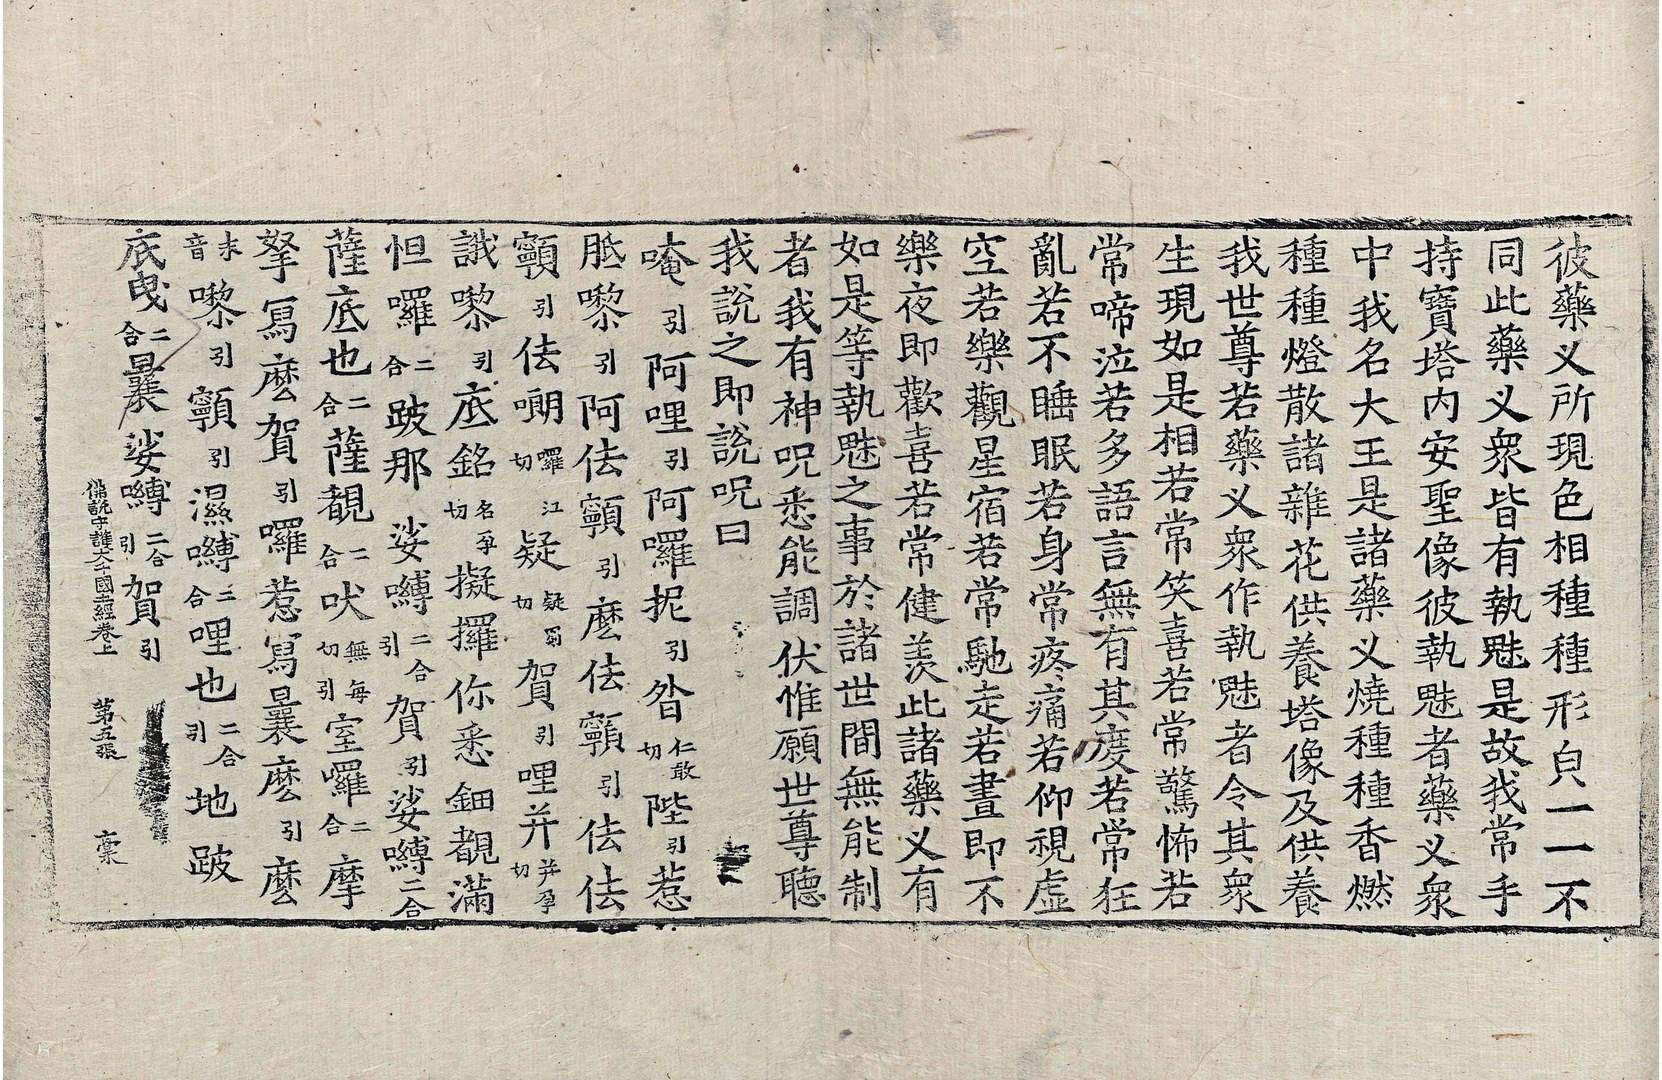 彼藥义所現色相種種形皃一一不
同此藥义衆皆有執魅是故我常手
持寶塔内安聖像彼執魅者藥义衆
中我名大王是諸藥义燒種種香燃
種種燈散諸雜花供養塔像及供養
我世尊若藥义衆作執魅者令其衆
生現如是相若常笑喜若常驚怖若
常啼泣若多語言無有其度若常狂
亂若不睡眠若身常疼痛若仰視虛
空若樂觀星宿若常馳走若晝即不
樂夜即歡喜若常健羨此諸藥义有
如是等執魅之事於諸世間無能制
者我有神呪悉能調伏惟願世尊聽
我說之即說呪曰
唵引阿哩引阿囉抳引昝仁敢切陛引惹
胝嚟引阿佉顟引麽佉顟引佉佉
顟引佉嘲囉江切疑疑蜀切賀引哩并并孕切
識嚟引底銘名孕切擬攞你悉鈿覩滿
怛囉二合跛那娑嚩二合引賀引娑嚩二合
薩底也二合薩覩二合吠無每切引室囉二合摩
拏寫麽賀引囉惹寫曩麽引麽
末音嚟引顟引濕嚩二合哩也二合引地跛
底曳二合曩娑嚩二合引賀引
佛說守護大千國土經卷上 第五張 稾